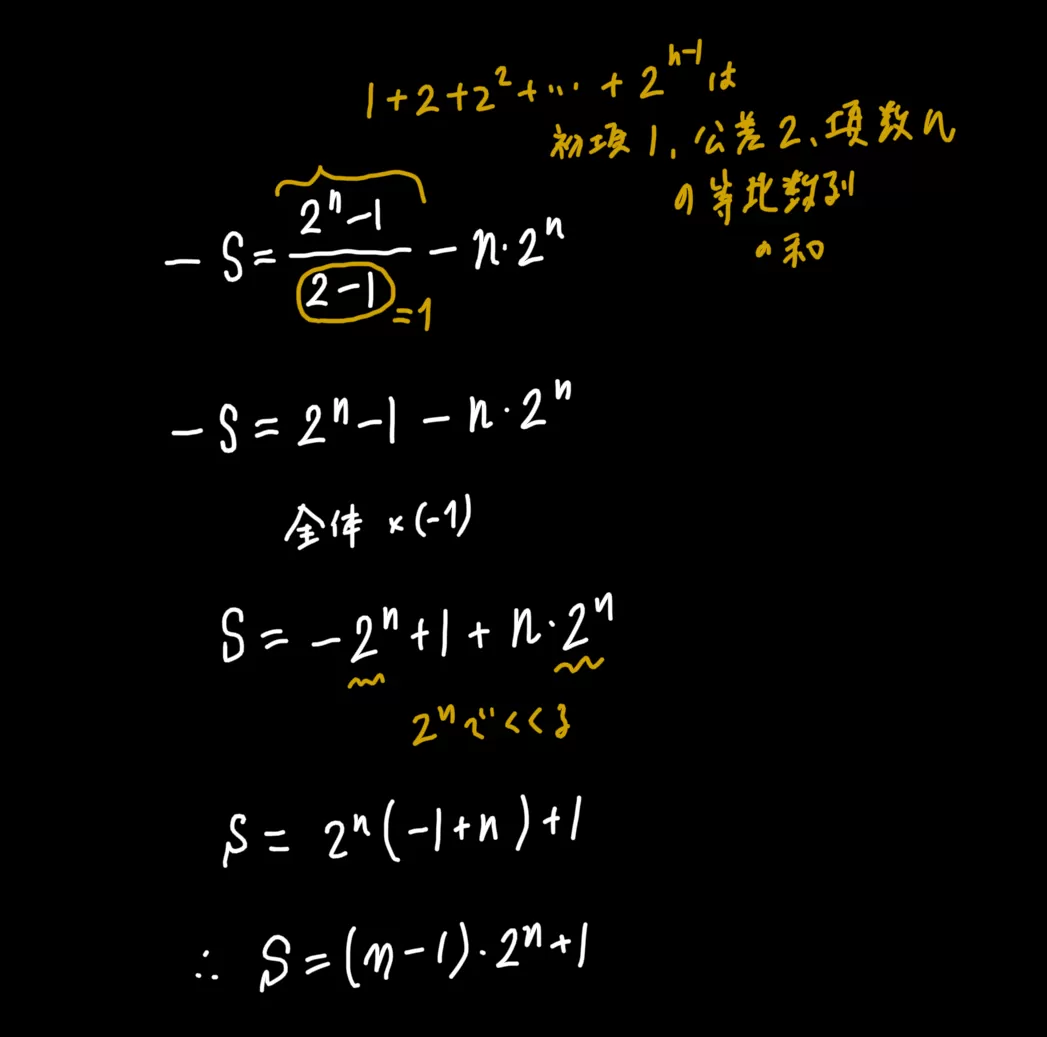 1+2+2²+…+2ⁿ⁻¹は
初項1、公差2、項数n
の等比数列
の和
-S=(2ⁿ-1)/(2-1)-n·2ⁿ
=1
-S=2ⁿ-1-n·2ⁿ
全体×(-1)
S=-2ⁿ+1+n·2ⁿ
2ⁿでくくる
S=2ⁿ(-1+n)+1
∴S=(n-1)·2ⁿ+1